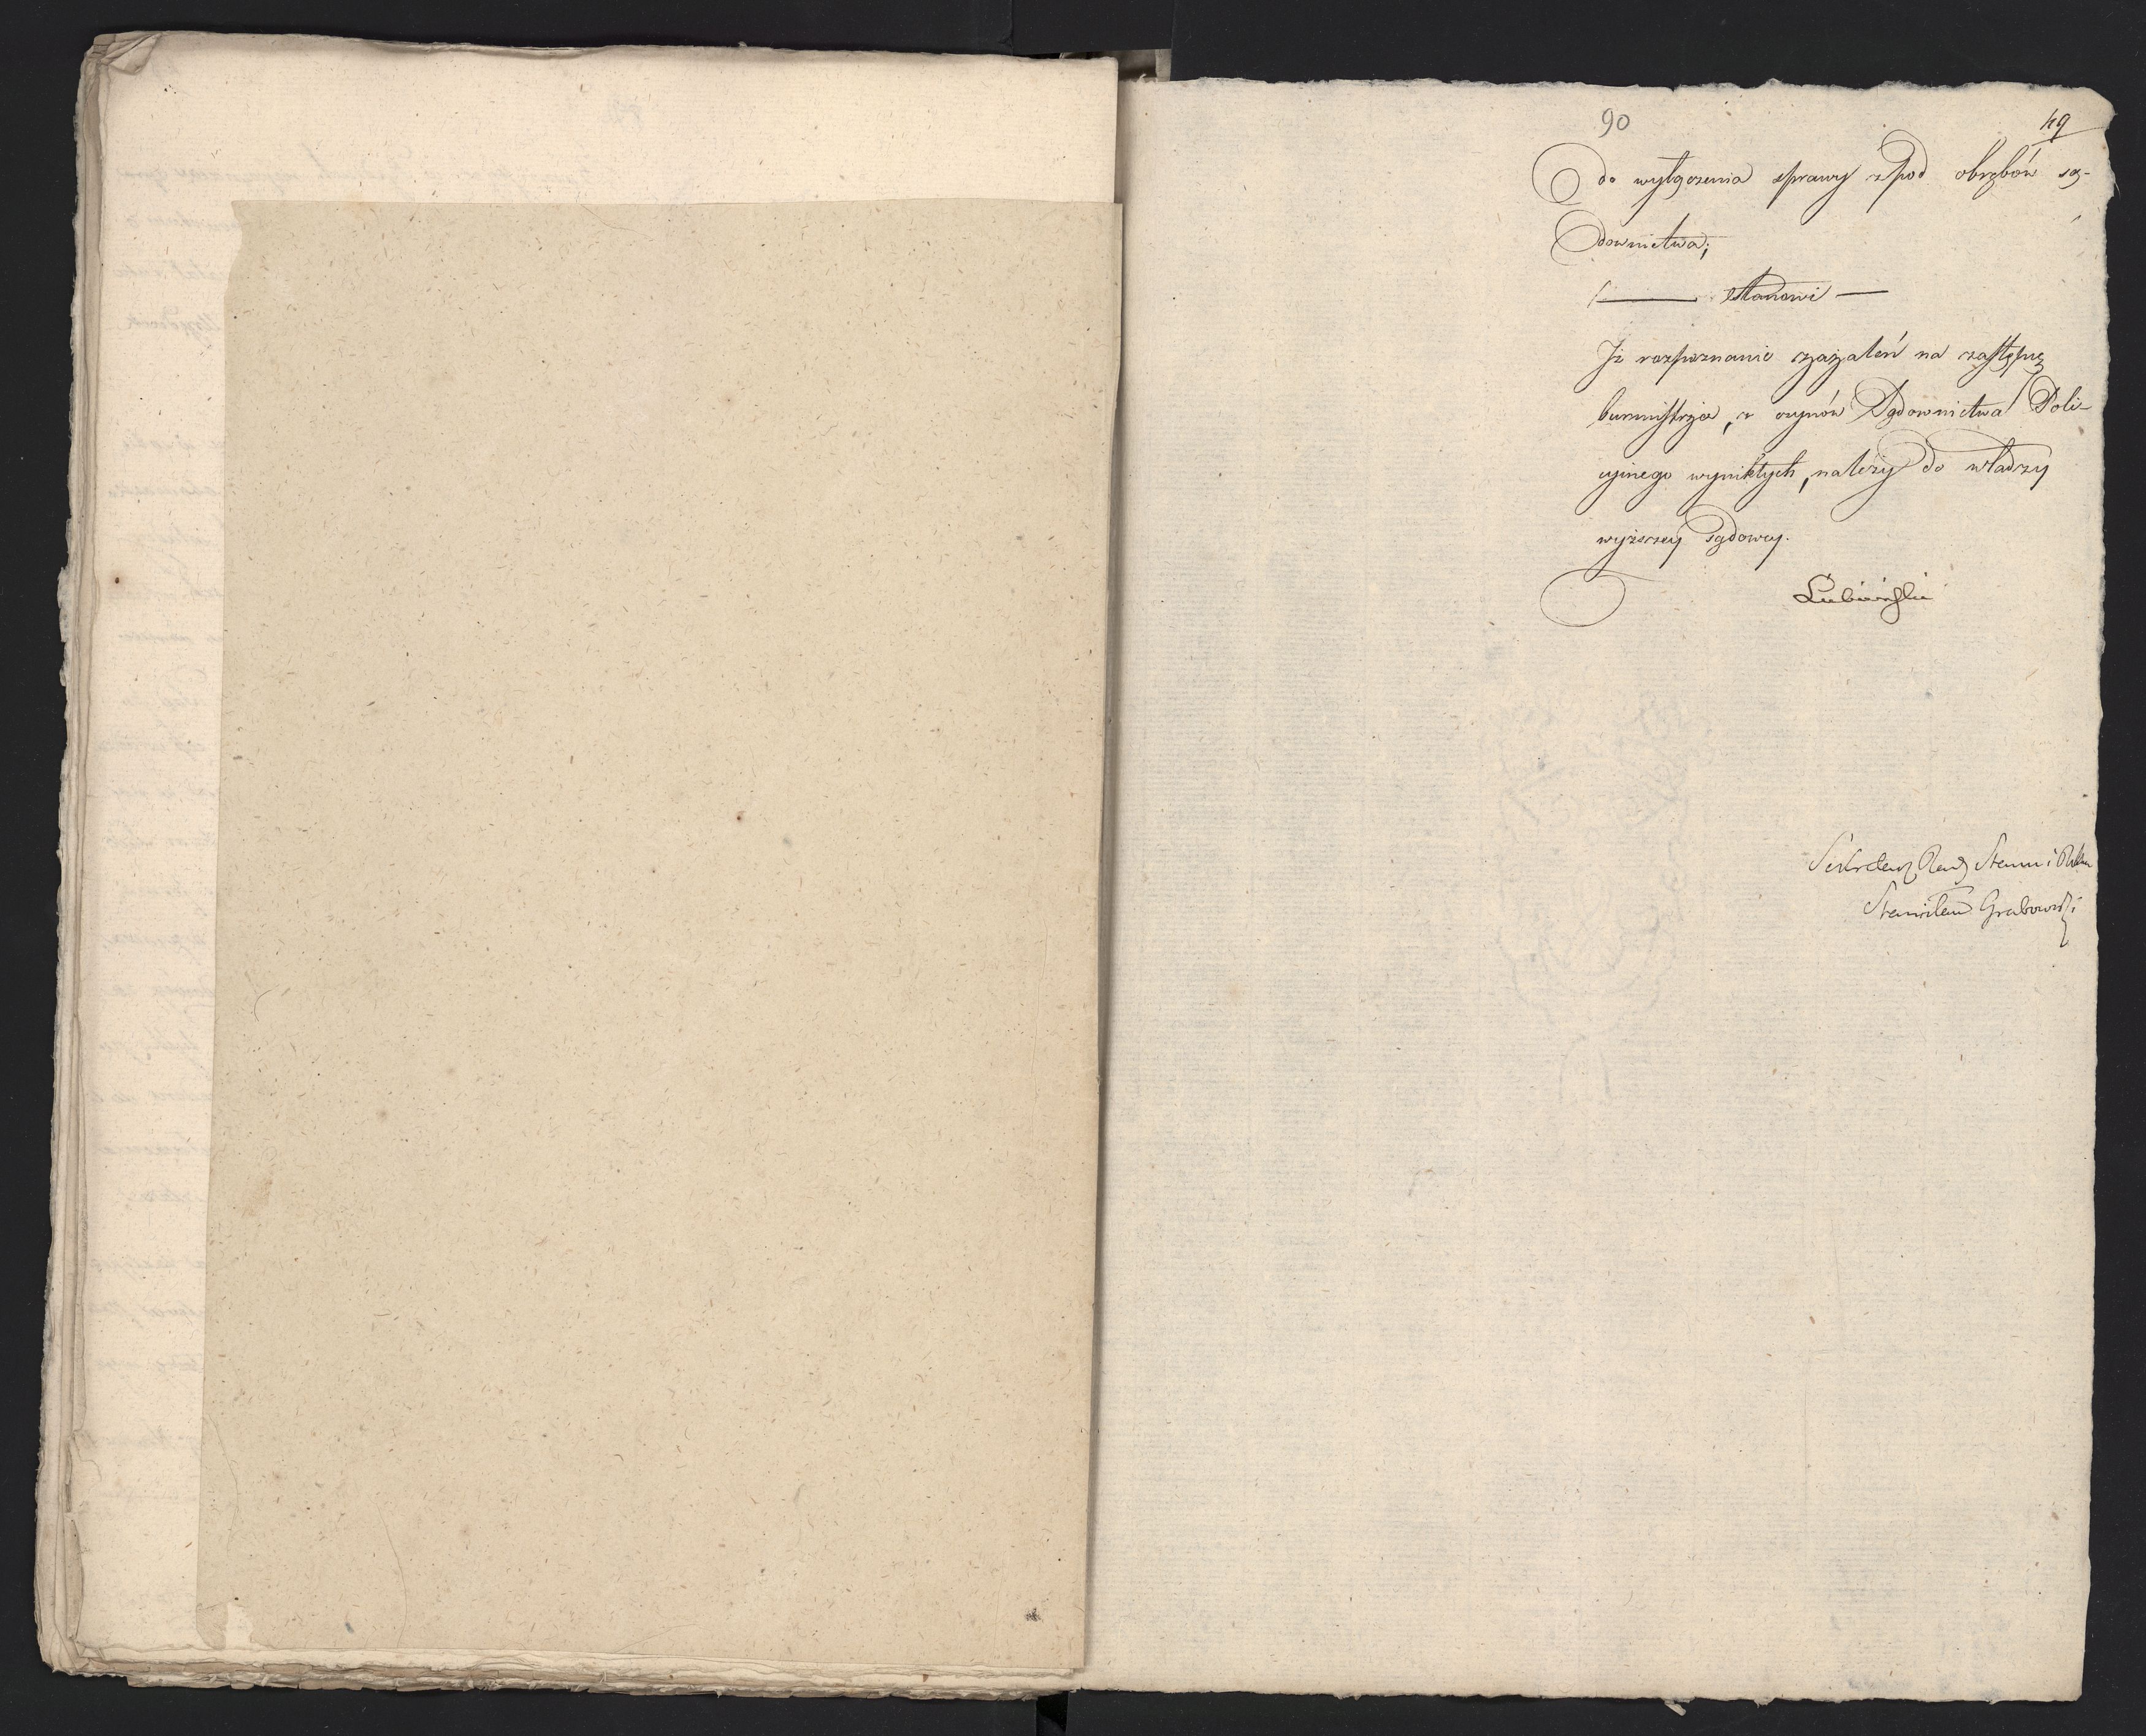 90
49
do wyłączenia sprawy z pod obrębów są-
downictwa;
stanowi
Iż rozpoznanie zażaleń na zastępcę
burmistrza, z czynów Sądownictwa Poli-
cyjnego wynikłych, należy do władzy
wyższey sądowey.
Łubieński
Sekretarz Rady Stanu i
Stanisław Grabowski